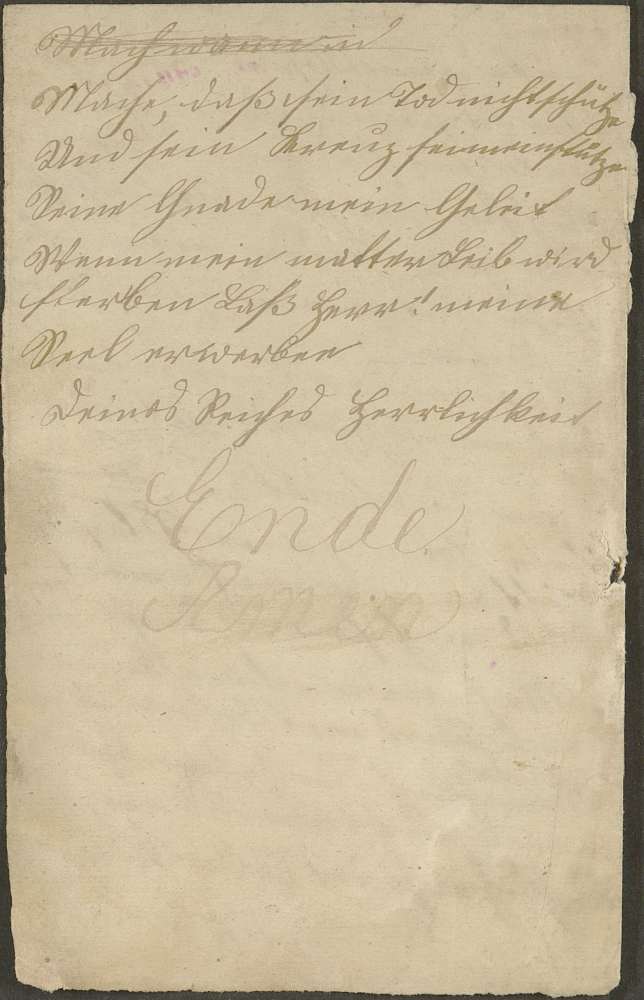 Mach wann ich
Mache, daß sein Tod nicht schütze
Und sein Kreuz sei mein stütze
Seine Gnade mein Geleit
Wenn mein matter Leib wird
sterben Laß Herr! meine
Seel erwerben
Deines Reiches Herrlichkeit
Ende.
Amen